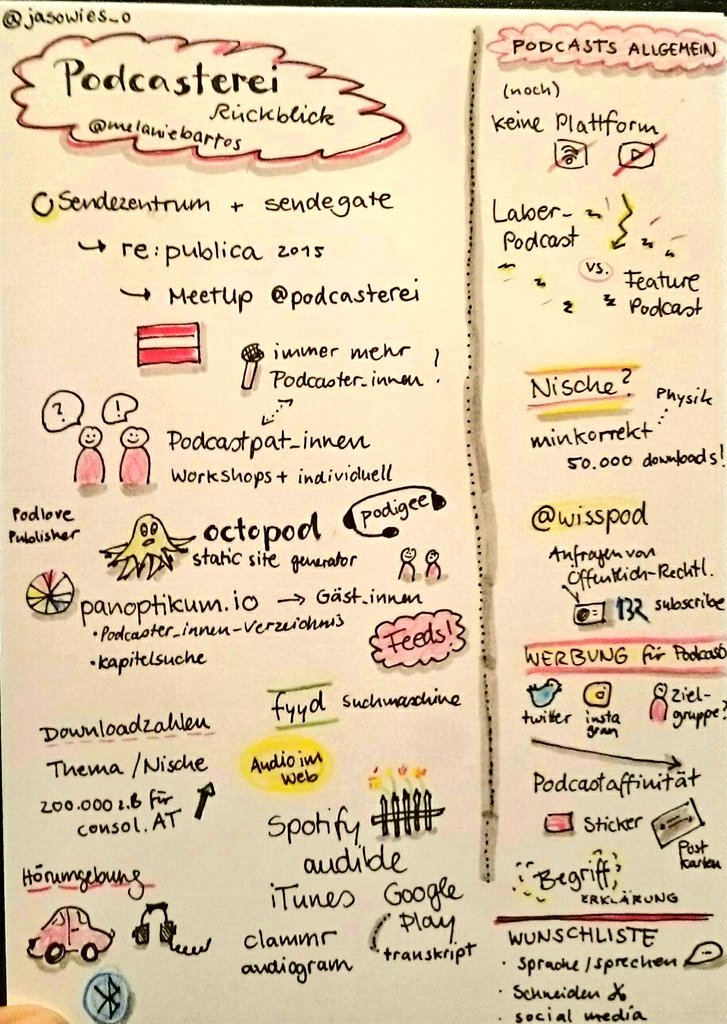 @jasowies_o
Podcasterei
Rückblick
@melaniebartos
Sendezentrum + sendegate
re:publica 2015
MeetUp @podcasterei
immer mehr
Podcaster_innen!
? !
Podcastpat_innen
Workshops + individuell
Podlove
Publisher
octopod
static site generator
podigee
panoptikum.io → Gäst_innen
• Podcaster_innen-Verzeichnis
• Kapitelsuche
Feeds!
fyyd Suchmaschine
Downloadzahlen
Thema / Nische
200.000 z.B für
consol.AT
Audio im
Web
Hörumgebung
Spotify
audible
iTunes Google
Play
clammr
audiogram
transkript
PODCASTS ALLGEMEIN
(noch)
keine Plattform
Laber-
Podcast
vs.
Feature
Podcast
Nische?
Physik
minkorrekt
50.000 downloads!
@wisspod
Anfragen von
Öffentlich-Rechtl.
132 subscribe
WERBUNG für Podcasts
twitter
insta
gram
Ziel-
gruppe?
Podcastaffinität
Sticker
Post
karten
Begriff
ERKLÄRUNG
WUNSCHLISTE
• Sprache/sprechen
• Schneiden
• social media